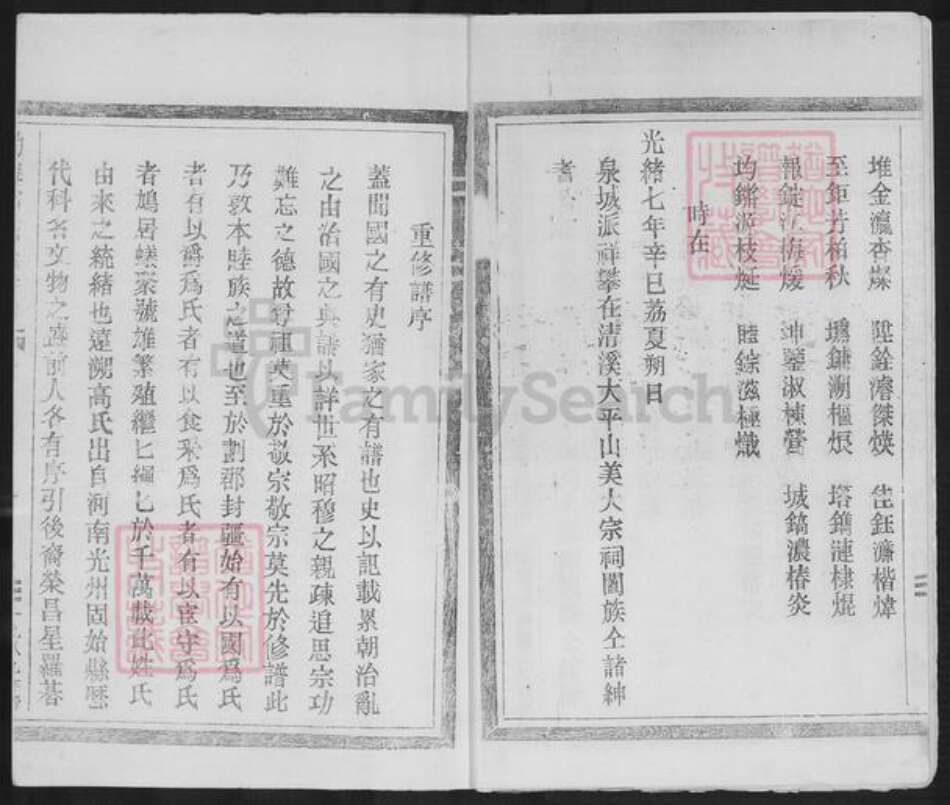 堆金瀛杏燦 陞銓濬傑煐 𡉄鈺濂楷煒
至鉅芳柏秋 墉鏞溯樞烺 塔鐫漣棣焜
報錠江梅煖 坤鋆淑棟營 城鎬濃椿炎
均鏘游枝烻 陸錝滋極熾
時在
光緒七年辛巳荔夏朔日
泉城派祥攀在清溪大平山美大宗祠闔族仝諸紳
耆
重修譜序
蓋聞國之有史猶家之有譜也史以記載累朝治亂
之由治國之典譜以詳世系昭穆之親疎追思宗功
難忘之德故尊祖莫重於敬宗敬宗莫先於修譜此
乃敦本睦族之道也至於劃郡封疆始有以國爲氏
者有以爵爲氏者有以食釆爲氏者有以官守爲氏
者鳩居蟻聚號雄繁殖繼匕繩匕於千萬載此姓氏
由來之統緒也遠溯高氏出自河南光州固始縣歷
代科名文物之盛前人各有序引後裔榮昌星羅碁
FamilySearch